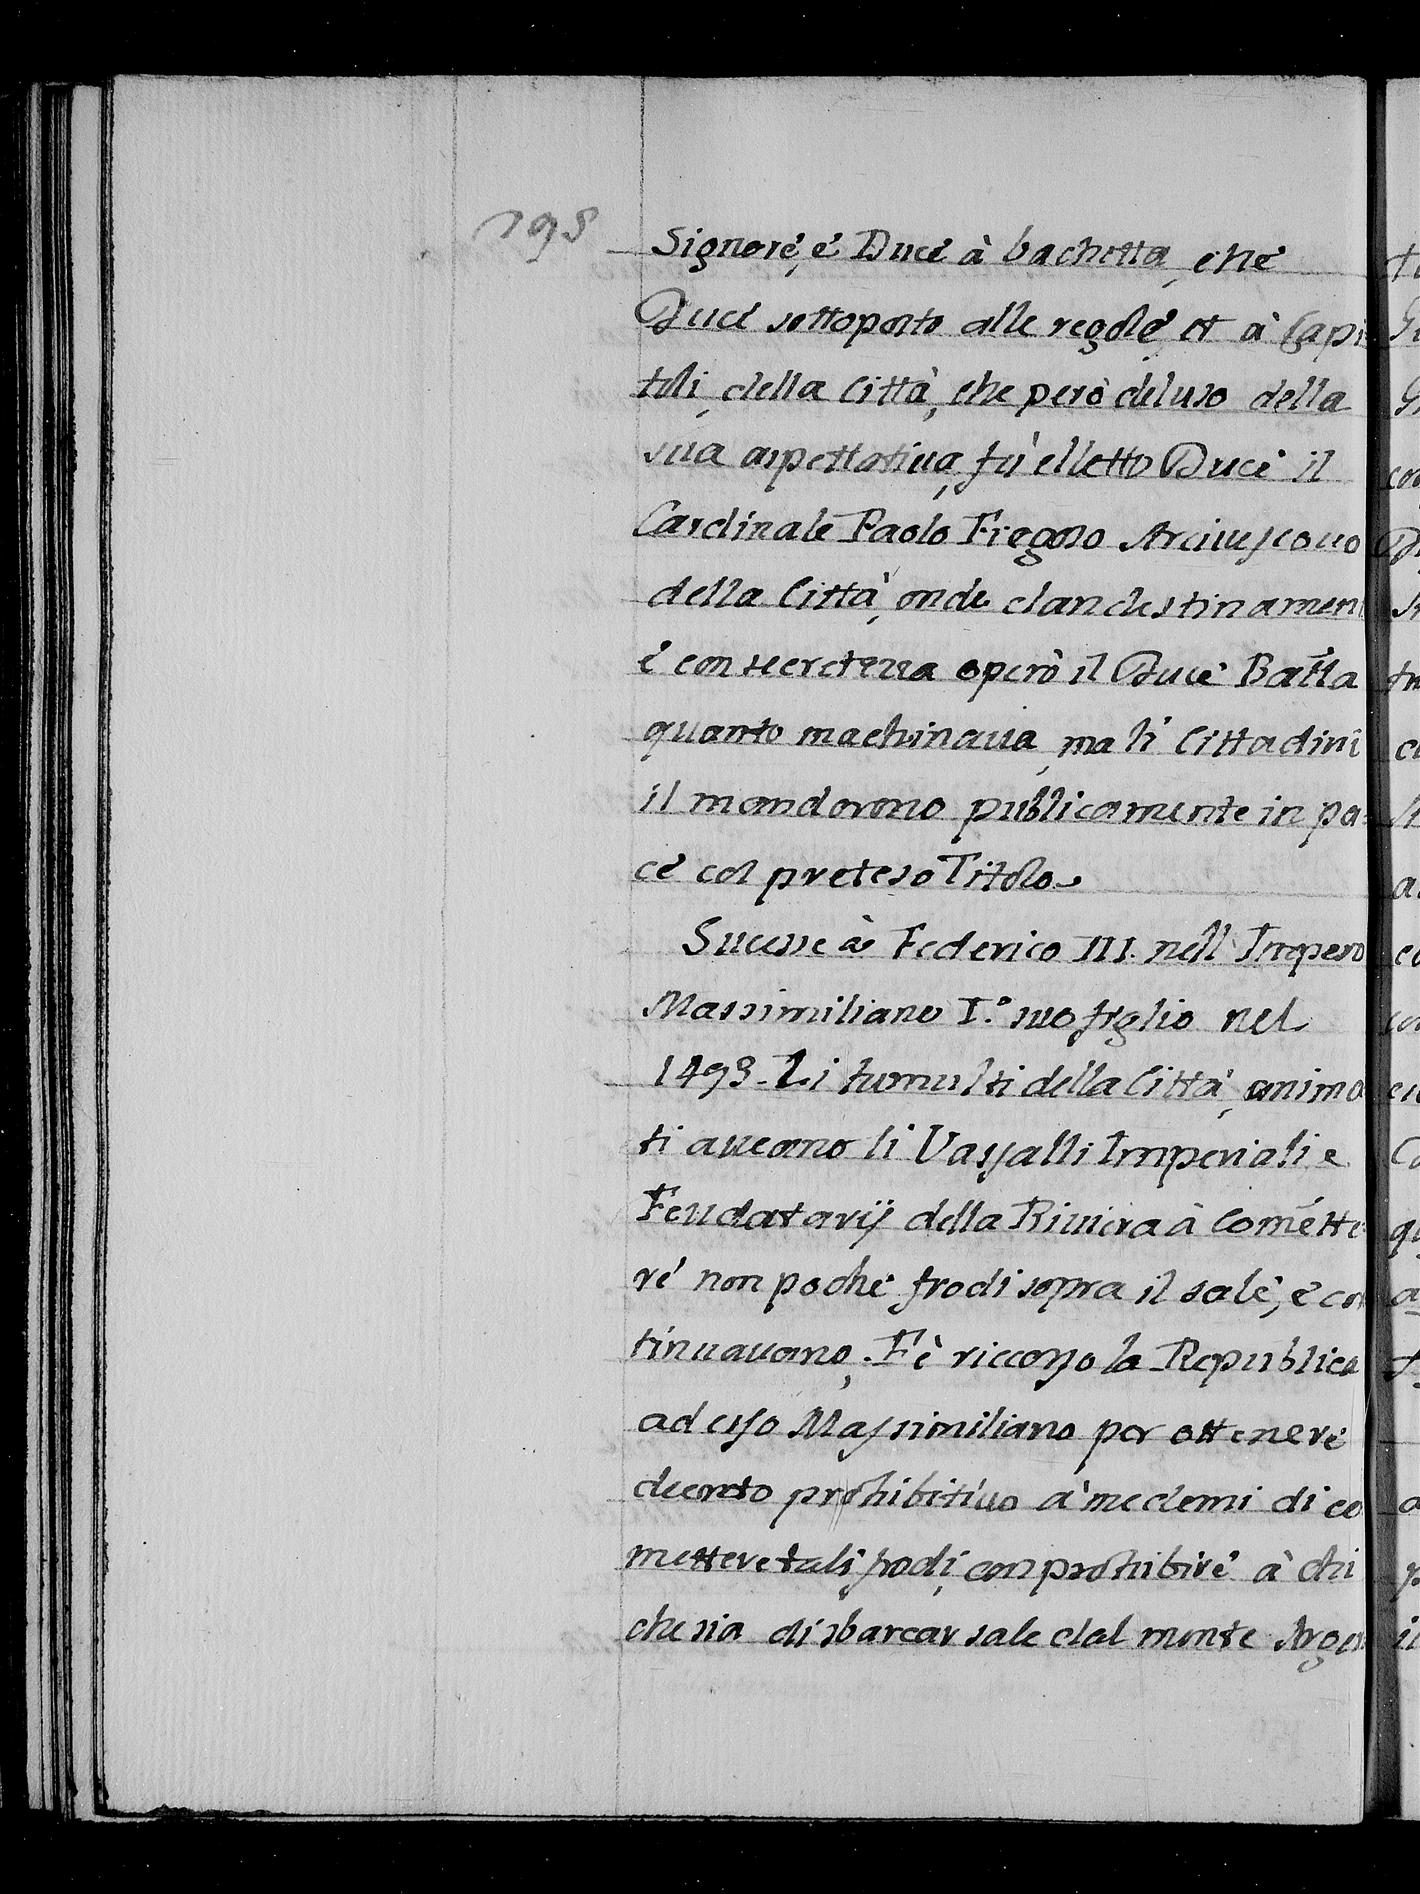 195
Signore, e Duce à bachetta, che
Duce sottoposto alle regole, et à Capi
toli, della Città, che però deluso della
sua aspettatiua, fu' elletto Duce il
Cardinale Paolo Fregoso Arciuescouo
della Città, onde clandestinamen
è con secretezza operò il Duce Batta
quanto machinaua, ma li Cittadini
il mandorono publicamente in pa-
ce col preteso Titolo
Sucesse à Federico III. nell Impero
Massimiliano I.º suo figlio nel
1493. Li tumulti della Città, anima
ti aueano li Vassalli Imperiali e
Feudatarij della Riuiera à Comette
re non poche frodi sopra il sale, è con
tinuauano. Fè riccorso la Republica
ad esso Massimiliano per ottenere
decreto prohibitiuo à medemi di co
mettere tali frodi, con prohibire à chi
che sia di sbarcar sale dal monte Argen